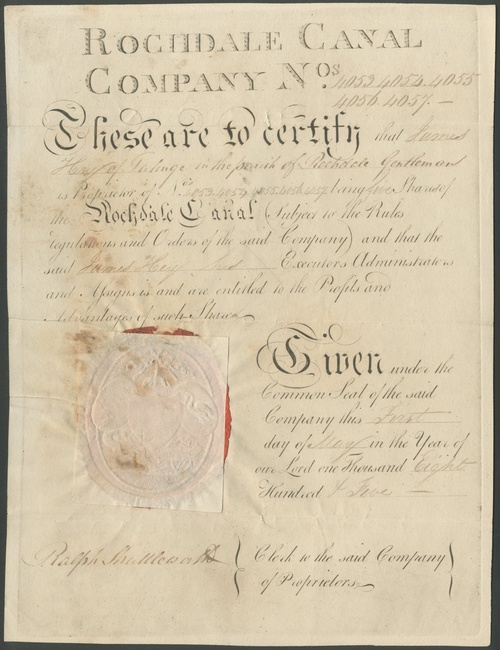 ROCHDALE CANAL
COMPANY Nos 4053 4054 4055
4056 4057. —
These are to certify that James
Hey of in the parish of Rochdale Gentleman
is Proprietor of Nos 4053 4054 4055 4056 4057 being five Shares of
the Rochdale Canal (Subject to the Rules
regulations and Orders of the said Company) and that the
said James Hey his Executors Administrators
and Assigns is and are entitled to the Profits and
Advantages of such Shares
Given under the
Common Seal of the said
Company this First
day of May in the Year of
our Lord one Thousand Eight
Hundred & Five —
Ralph Shuttleworth { Clerk to the said Company }
of Proprietors